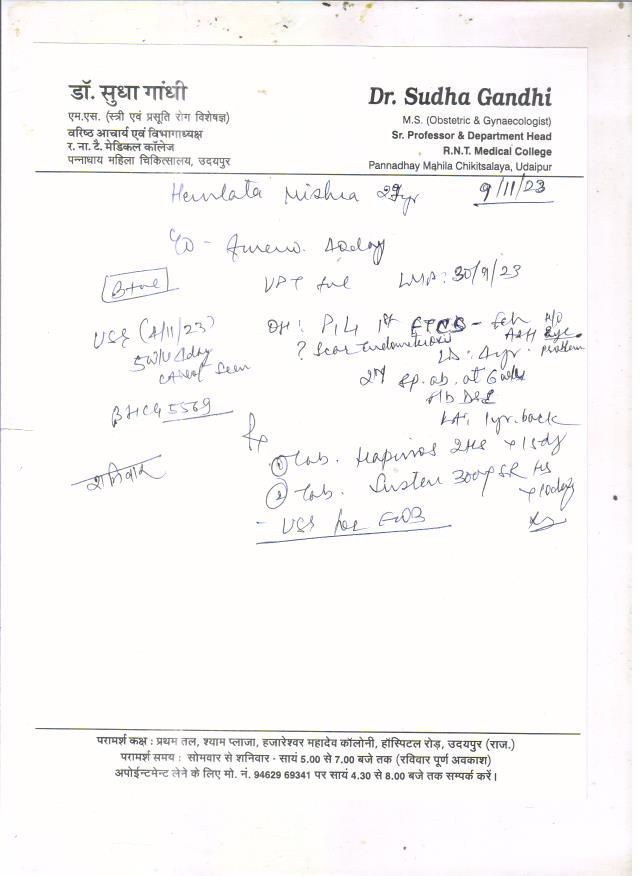 डॉ. सुधा गांधी
एम.एस. (स्त्री एवं प्रसूति रोग विशेषज्ञ)
वरिष्ठ आचार्य एवं विभागाध्यक्ष
र. ना. टै. मेडिकल कॉलेज
पन्नाधाय महिला चिकित्सालय, उदयपुर
Dr. Sudha Gandhi
M.S. (Obstetric & Gynaecologist)
Sr. Professor & Department Head
R.N.T. Medical College
Pannadhay Mahila Chikitsalaya, Udaipur
Hemlata Mishra 29yr 9/11/23
B+ve
UPT +ve LMP: 30/9/23
USG (4/11/23)
5W/ 4day
seen
BHCG 5569
OH: P1L1 1st
? Scar Endometriosis
LD: 4yr.
problem
2nd sp. ab. at 6
1yr. back
Rx
① Tab. 2HS x 15d
② Tab. Susten 300 SR HS
x 10days
- USG for FWB
शनिवार
परामर्श कक्ष : प्रथम तल, श्याम प्लाजा, हजारेश्वर महादेव कॉलोनी, हॉस्पिटल रोड़, उदयपुर (राज.)
परामर्श समय : सोमवार से शनिवार - सायं 5.00 से 7.00 बजे तक (रविवार पूर्ण अवकाश)
अपोईन्टमेन्ट लेने के लिए मो. नं. 94629 69341 पर सायं 4.30 से 8.00 बजे तक सम्पर्क करें।